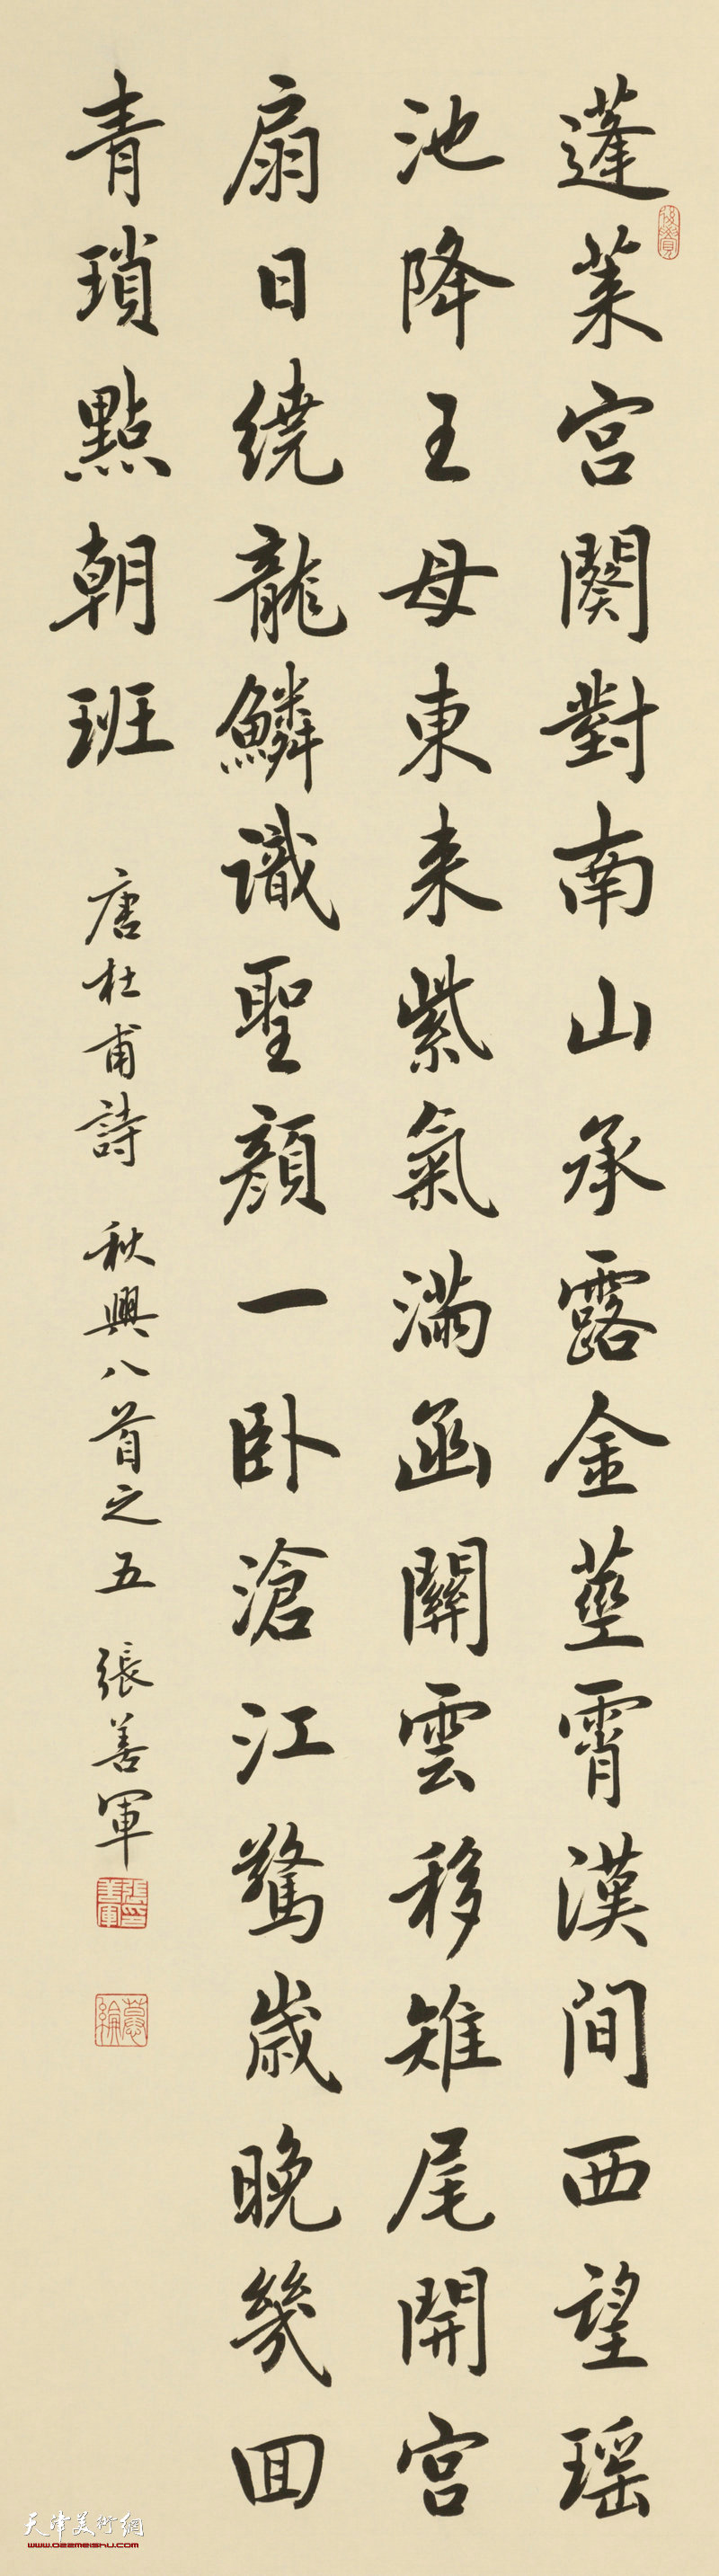 蓬萊宮闕對南山承露金莖霄漢間西望瑶
池降王母東来紫氣滿函關雲移雉尾開宮
扇日繞龍鱗識聖顏一卧滄江驚歲晚幾回
青瑣點朝班
唐杜甫詩 秋興八首之五 張善軍
天津美術網
www.022meishu.com